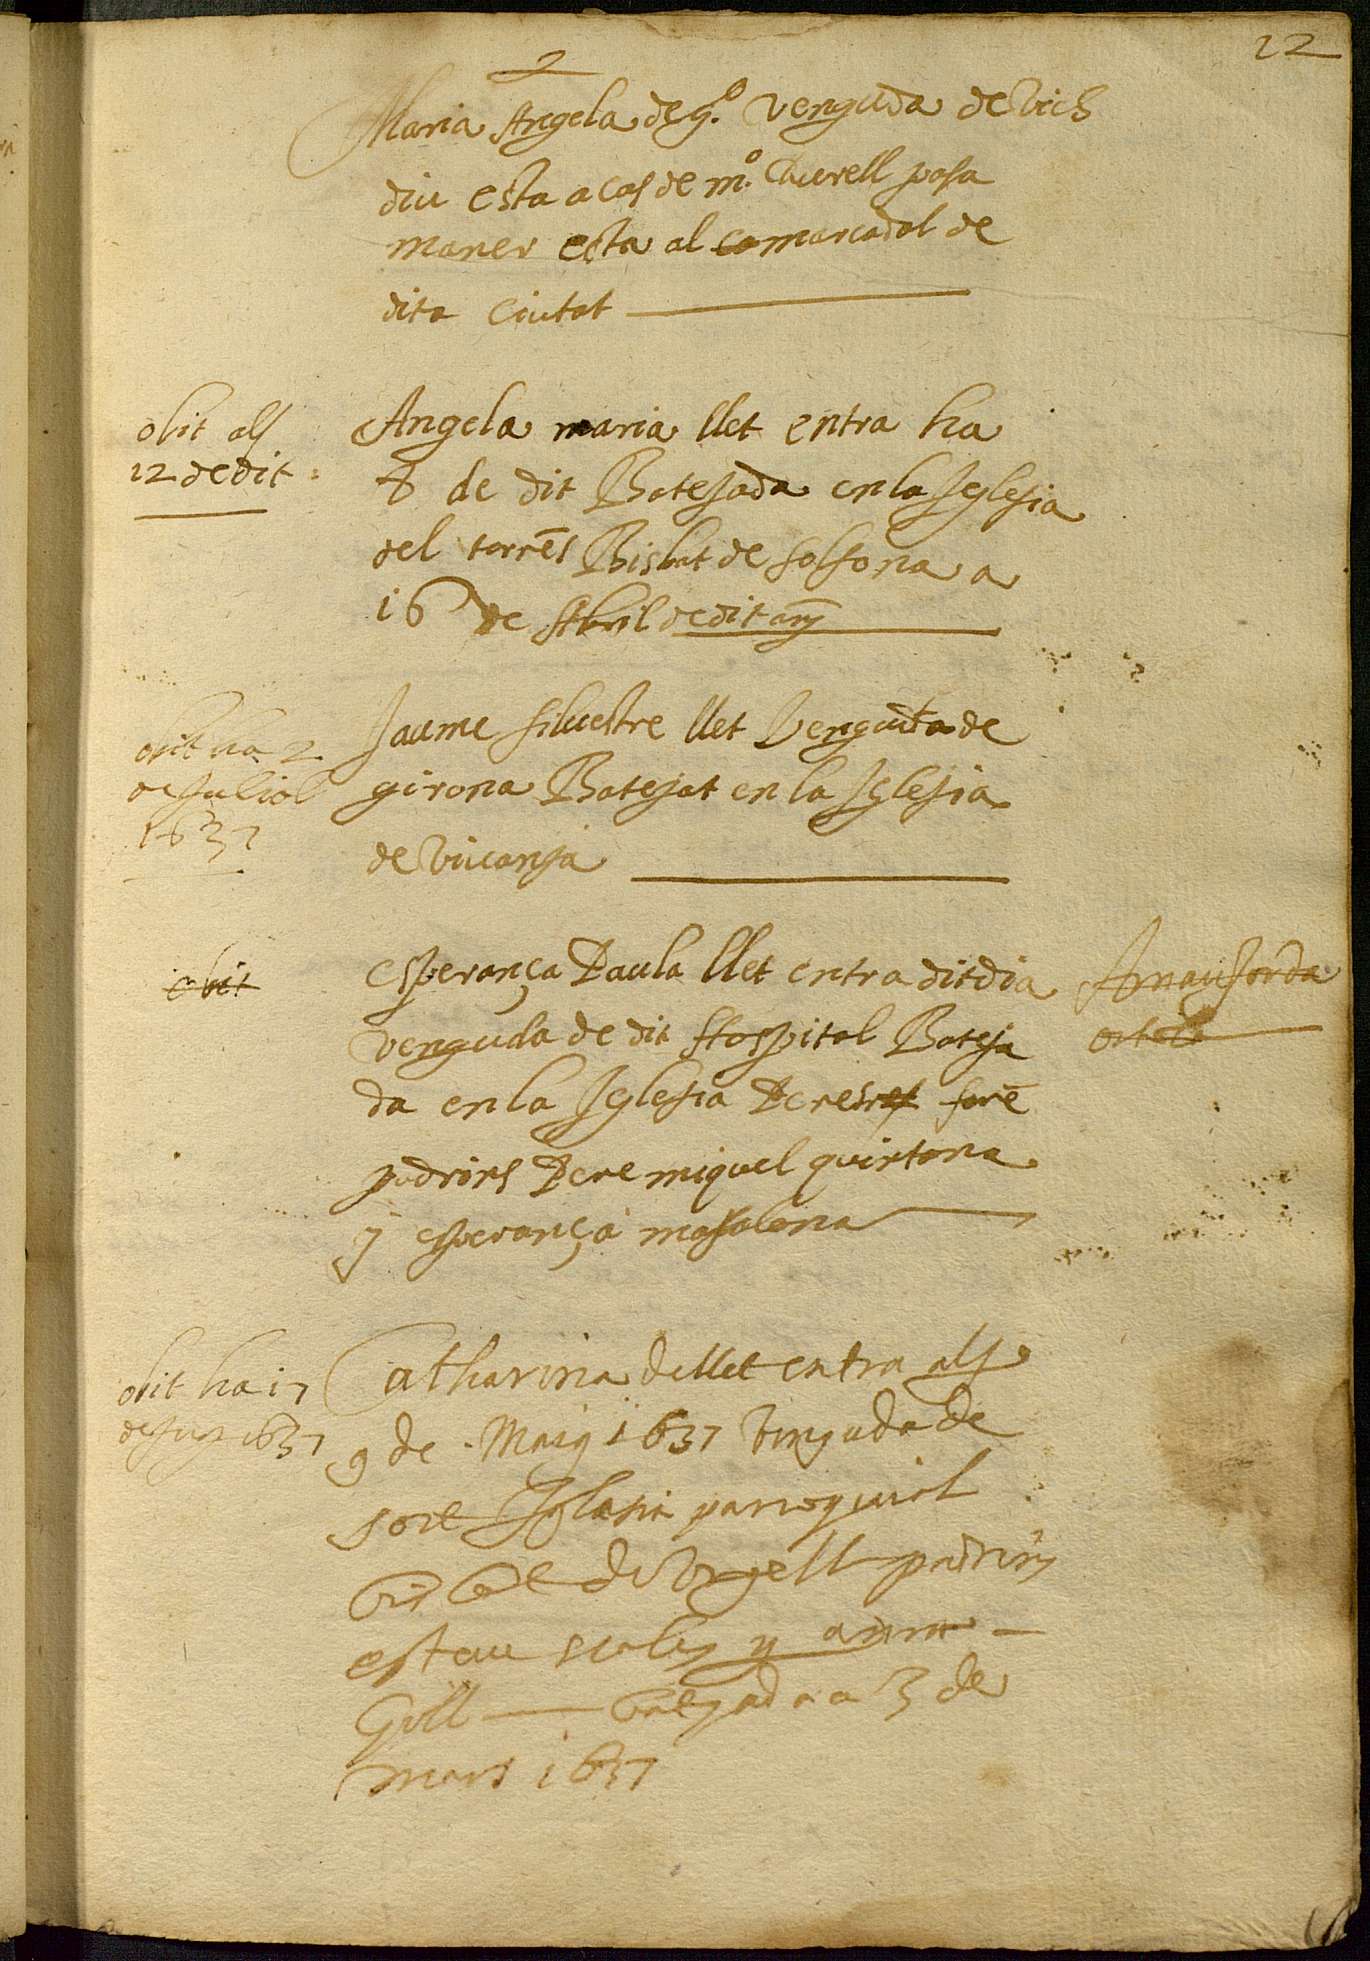 22
Maria Angela de gº. venguda de Vich
diu esta a cas de mº. Cuvrell pasa
maner esta al comarcadal de
dita Ciutat
obit als
12 de dit
Angela maria llet entra ha
8 de dit Batejada en la Iglesia
del torrēs Bisbat de Solsona a
16 de Abril de dit any
obit ha 2
de Juliol
1637
Jaume Siluestre llet Venguda de
girona Batejat en la Iglesia
de Vilcanja
obit
esperança Paula llet entra dit dia
venguda de dit Hospital Bateja
da en la Iglesia Pere forē
padrins Pere miquel quintana
y esperança magdalena
Arnau Jorda
obit ha 17
de Juny 1637
Catharina de llet entra als
9 de Maig 1637 Vinguda de
sort Iglesia parroquial
bisbat de Vrgell padrins
esteue y anna
Gill batejada a 3 de
mars 1637